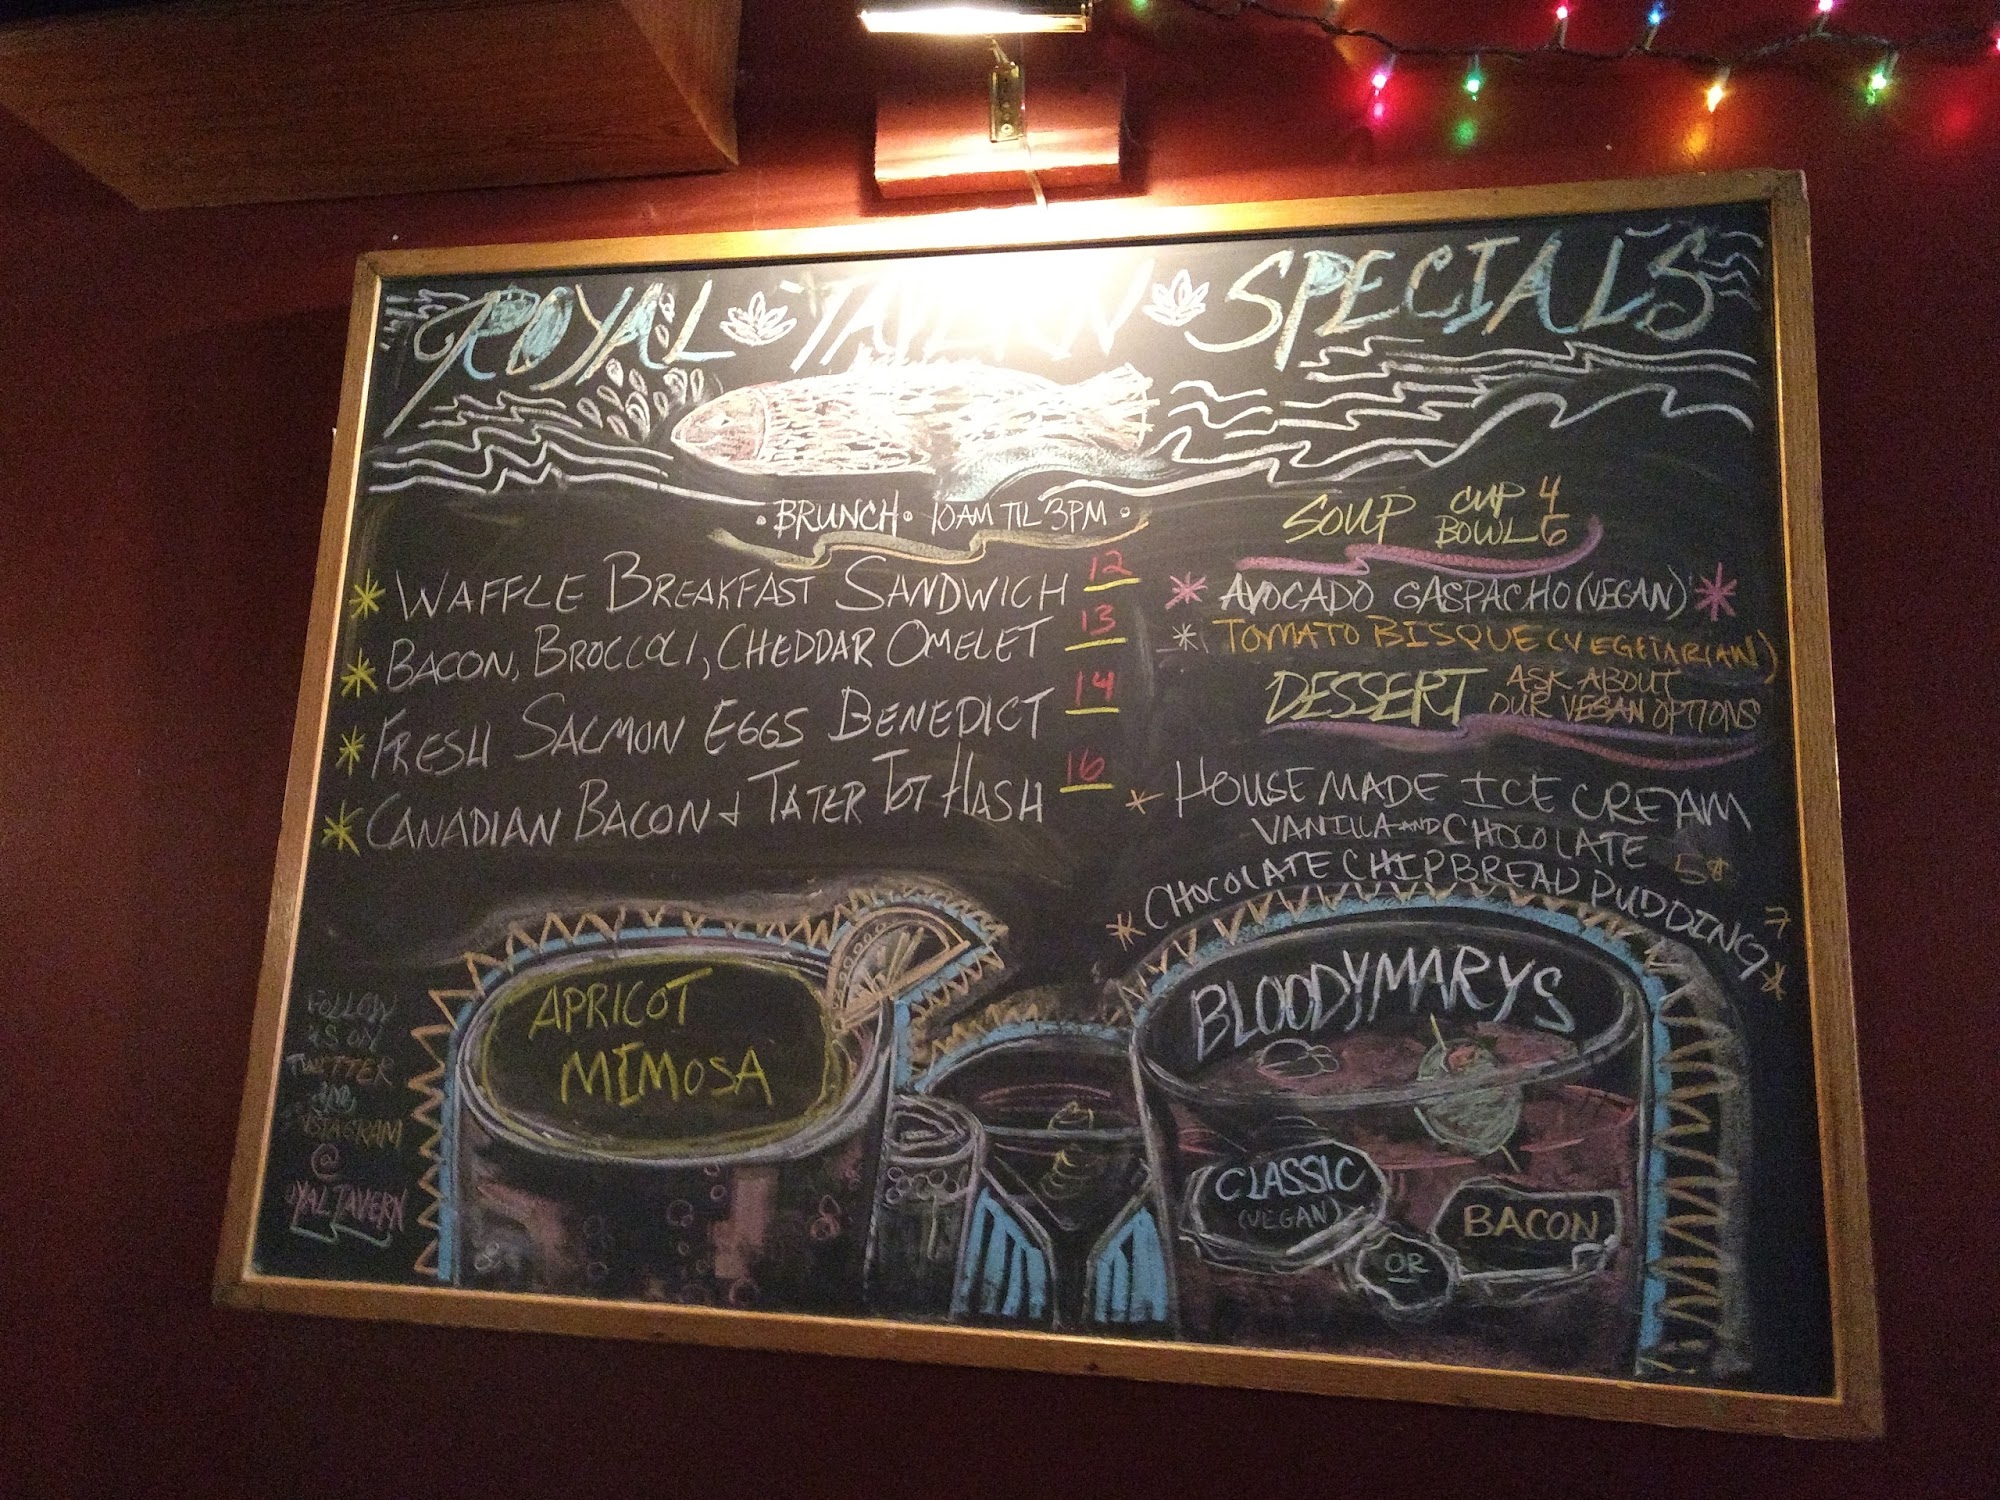 ROYAL TAVERN SPECIALS
BRUNCH • 10AM TIL 3PM
WAFFLE BREAKFAST SANDWICH 12
BACON, BROCCOLI, CHEDDAR OMELET 13
FRESH SALMON EGGS BENEDICT 14
CANADIAN BACON & TATER TOT HASH 16
SOUP CUP 4
BOWL 6
AVOCADO GASPACHO (VEGAN)
TOMATO BISQUE (VEGETARIAN)
DESSERT ASK ABOUT
OUR VEGAN OPTIONS
HOUSE MADE ICE CREAM
VANILLA AND CHOCOLATE 5
CHOCOLATE CHIP BREAD PUDDING 7
APRICOT
MIMOSA
BLOODYMARYS
CLASSIC
(VEGAN)
OR
BACON
FOLLOW
US ON
TWITTER
AND
INSTAGRAM
@
ROYALTAVERN